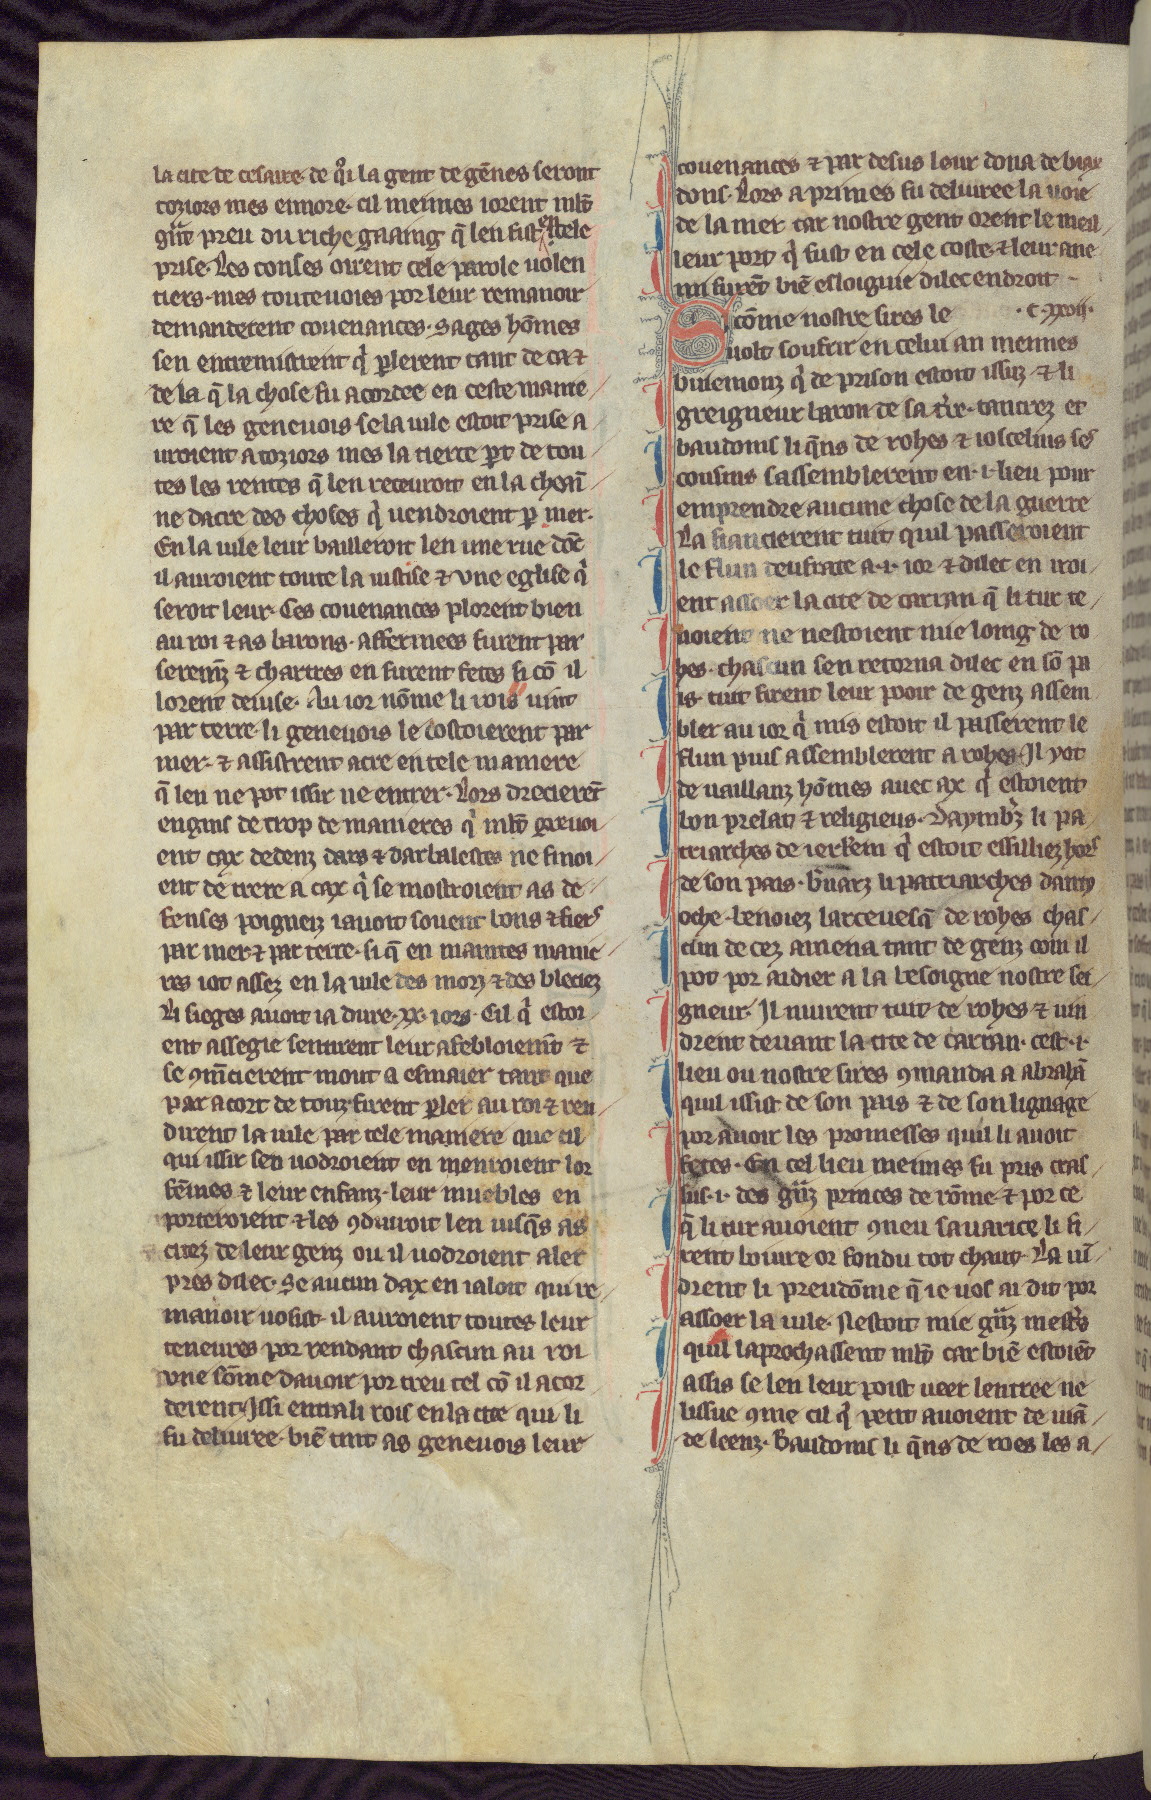 la cite de cesaire. de q̃i la gent de gẽnes seront
toziors mes ennore. cil meimes iorent ml̃t
gñt preu du riche gaaing q̃ len fist en tele
prise. Les conses oirent cele parole uolen
tiers. mes toutevoies por leur remanoir
demanderent couenances. Sages hõmes
sen entremistrent q̃ p̱lerent tant de ca ⁊
de la q̃ la chose fu acordee en ceste manie/
re q̃ les geneuois se la uile estoit prise a/
uroient a toziors mes la tierce p̱t de tou/
tes les rentes q̃ len receuroit en la cheañ/
ne dacre des choses q̃ uendroient p̱ mer.
En la uile leur bailleroit len une rue dõt
il auroient toute la iustise ⁊ vne eglise q̃
seroit leur. Ces couenances plorent bien
au roi ⁊ as barons. affermees furent par
seremz̃ ⁊ chartres en furent fetes si cõ il
lorent deuise. Au ior nõme li rois uint
par terre. li geneuois le costoierent par
mer. ⁊ assistrent acre en tele maniere
q̃ len ne pot issir ne entrer. Lors drecierẽt
engins de trop de manieres q̃ ml̃t greuoi/
ent cax dedenz dars ⁊ darbalestes ne finoi/
ent de trere a cax q̃ se mostroient as de/
fenses poigneiz iauoit souent bons ⁊ fiers
par mer ⁊ par terre. si q̃ en maintes manie/
res iot assez en la uile des morz ⁊ des bleciez
Li sieges auoit ia dure. xx. iors. Cil q̃ estoi/
ent assegie sentirent leur afebloiemt̃ ⁊
se ꝯmẽcierent mout a esmaier tant que
par acort de touz firent p̱ler au roi ⁊ ren/
dirent la uile par tele maniere que cil
qui issir sen uodroient en menroient lor
fẽmes ⁊ leur enfanz. leur muebles en
porteroient ⁊ les ꝯduiroit len iusq̃s as
citez de leur genz ou il uodroient aler
pres dilec. Se aucun dax en ialoit qui re/
manoir uosist. il auroient toutes leur
teneures por rendant chascun au roi
vne sõme dauoir por treu tel cõ il acor/
derent. Issi entra li rois en la cite qui li
fu deliuree. biẽ tint as geneuois leur
couenances ⁊ par desus leur dona de biax
dons. Lors a primes fu deliuree la uoie
de la mer car nostre gent orent le meil/
leur port q̃ fust en cele coste. ⁊ leur ane
mi furẽt biẽ esloignie dilec endroit
Si cõme nostre sires le .C. xxviii.
uolt soufrir en celui an meimes
buiemonz q̃ de prison estoit issuz ⁊ li
greigneur baron de sa tr̃re. tancrez et
baudoins li q̃ns de rohes ⁊ ioscelins ses
cousins sassemblerent en .i. lieu pour
emprendre aucune chose de la guerre
La fiancierent tuit quil passeroient
le flun deufrate a .i. ior ⁊ dilec en iroi/
ent assoer la cite de carran q̃ li tur te/
noient ne nestoient mie loing de ro
hes. chascun sen retorna dilec en sõ pa
is. tuit firent leur pooir de genz assem
bler au ior q̃ mis estoit il passerent le
flun puis assemblerent a rohes. Il yot
de uaillanz hõmes auec ax q̃ estoient
bon prelat ⁊ religieus. Daymbz̃ li pa/
triarches de ierl̃em q̃ estoit essilliez hors
de son pais. Bñarz li patriarches danty
oche. benoiez larceuesq̃ de rohes chas/
cun de cez amena tant de genz com il
pot por aidier a la besoigne nostre sei/
gneur. Il murent tuit de rohes ⁊ uin
drent deuant la cite de carran. cest .i.
lieu ou nostre sires ꝯmanda a abrahã
quil issist de son pais ⁊ de son lignage
por auoir les promesses quil li auoit
fetes. En cel lieu meimes fu pris cras/
sus .i. des gñz princes de rõme ⁊ por ce
q̃ li tur auoient ꝯneu sauarice li fi/
rent boiure or fondu tot chaut. La uĩ/
drent li preudõme q̃ ie uos ai dit por
assoer la uile. Nestoit mie gñz mest̃s
quil laprochassent ml̃t car biẽ estoiẽt
assis se len leur poist ueer lentree ne
lissue ꝯme cil q̃ petit auoient de uiã/
de leenz. Baudoins li q̃ns de roes les a/